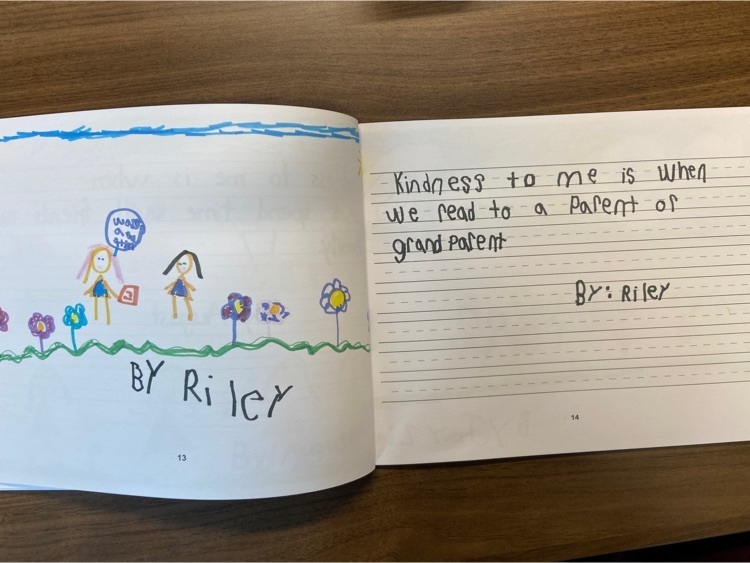 BY Riley
13
Kindness to me is when
we read to a parent or
grandparent
BY: Riley
14